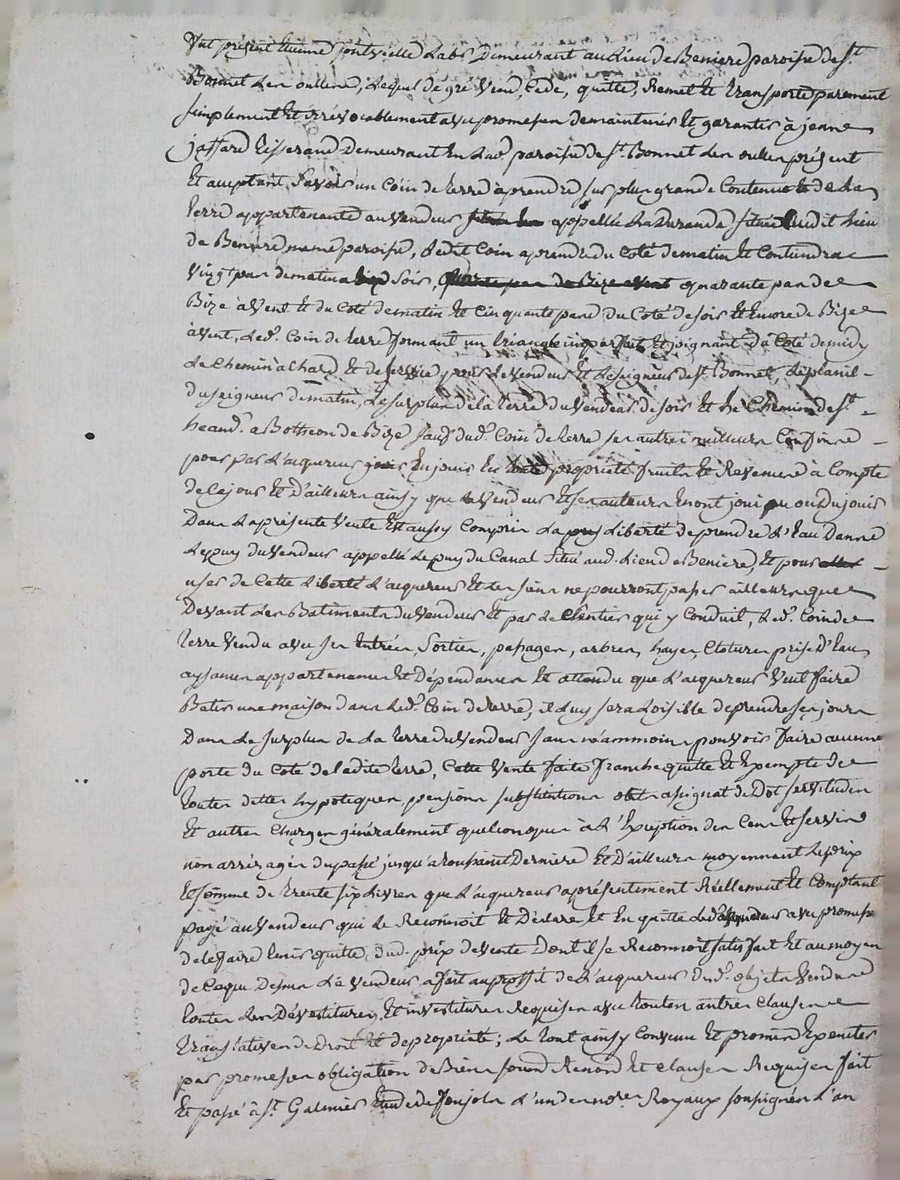 fut présent Etienne              Labr Demeurant au Lieu de Beniere paroisse de St.
Bonnet Les oulliere, Lequel de gré Vend, Cede, quitte, Remet Et transporte purement
simplement Et irrévocablement avec promesse de maintenir Et garantir à jeanne
jaffard tisserand Demeurant En Lad. paroisse de St. Bonnet Les oulles présent
Et acceptant, savoir un Coin de terre à prendre sur plus grande Contenue de La
terre appartenante au vendeur appellée La Duranda située audit Lieu
de Beniere meme paroisse, Ledit Coin a prendre du Coté de matin Et Contiendra
vingt pas de matin a soir, quarante pas de
Bize à Vent Et du Coté de matin Et Cinquante pas du Coté de soir Et Encore de Bize
à vent, Led. Coin de terre formant un triangle imparfait Et joignant du Coté de midy
Le Chemin à Chard Et de servie pour Le vendeur Et Le seigneur de St. Bonnet,
du seigneur de matin, Le surplus de la terre du Vendeur de soir Et Le Chemin de St.
heand a Botheon de Bize sauf dud. Coin de terre ses autres meilleurs Confins
pour par L'aquereur En jouir En propriété fruits Et Revenus à Compte
de Ce jour Et D'ailleurs ainsy que Le Vendeur Et ses auteurs En ont joui ou du jouir
Dans La présente Vente Est aussy Compris La Liberté de prendre de L'Eau Dans
Le puy du Vendeur appellé Le puy du Canal situé aud. Lieu de Beniere, Et pour
user de Cette Liberté L'aquereur Et Les siens ne pourront passer ailleurs que
Devant Les Batiments du Vendeur Et par Le sentier qui y Conduit, Led. Coin de
terre Vendu avec ses Entrées, Sorties, passages, arbres, hayes, Clotures prise D'Eau
aysances appartenances Et Dépendances Et attendu que L'aquereur Veut faire
Batir une maison dans Led. Coin de terre, il Luy sera Loisible de prendre ses jours
Dans Le surplus de La terre du Vendeur sans néammoins pouvoir faire aucune
porte du Coté de ladite terre, Cette Vente faite franche quitte Et Exempte de
toutes dettes hypoteques, pensions substitutions assignat de Dot servitudes
Et autres Charges généralement quelconques à L'Exception des Cens Et servis
non arréragés du passé jusqu'a toussaint Derniere Et D'ailleurs moyennant Le prix
Et somme de trente six Livres que L'aquereur a présentement Réellement Et Comptant
payé au Vendeur qui Le Reconnoit Et Déclare Et En quitte Led. aquereur avec promesse
de Le faire tenir quitte Dud. prix de Vente Dont il se Reconnoit satisfait Et au moyen
de Ce qui Dessus Le vendeur a fait au proffit de L'aquereur Dud. objet Vendu
toutes Les Dévestitures Et investitures Requises avec toutes autres Clauses
translatives de Droit Et de propriété; Le tout ainsy Convenu Et promis Executer
par promesses obligation de Biens soumis Renon. Et clauses Requises fait
Et passé à St. Galmier Etude de L'un des notres. Royaux soussignés L'an